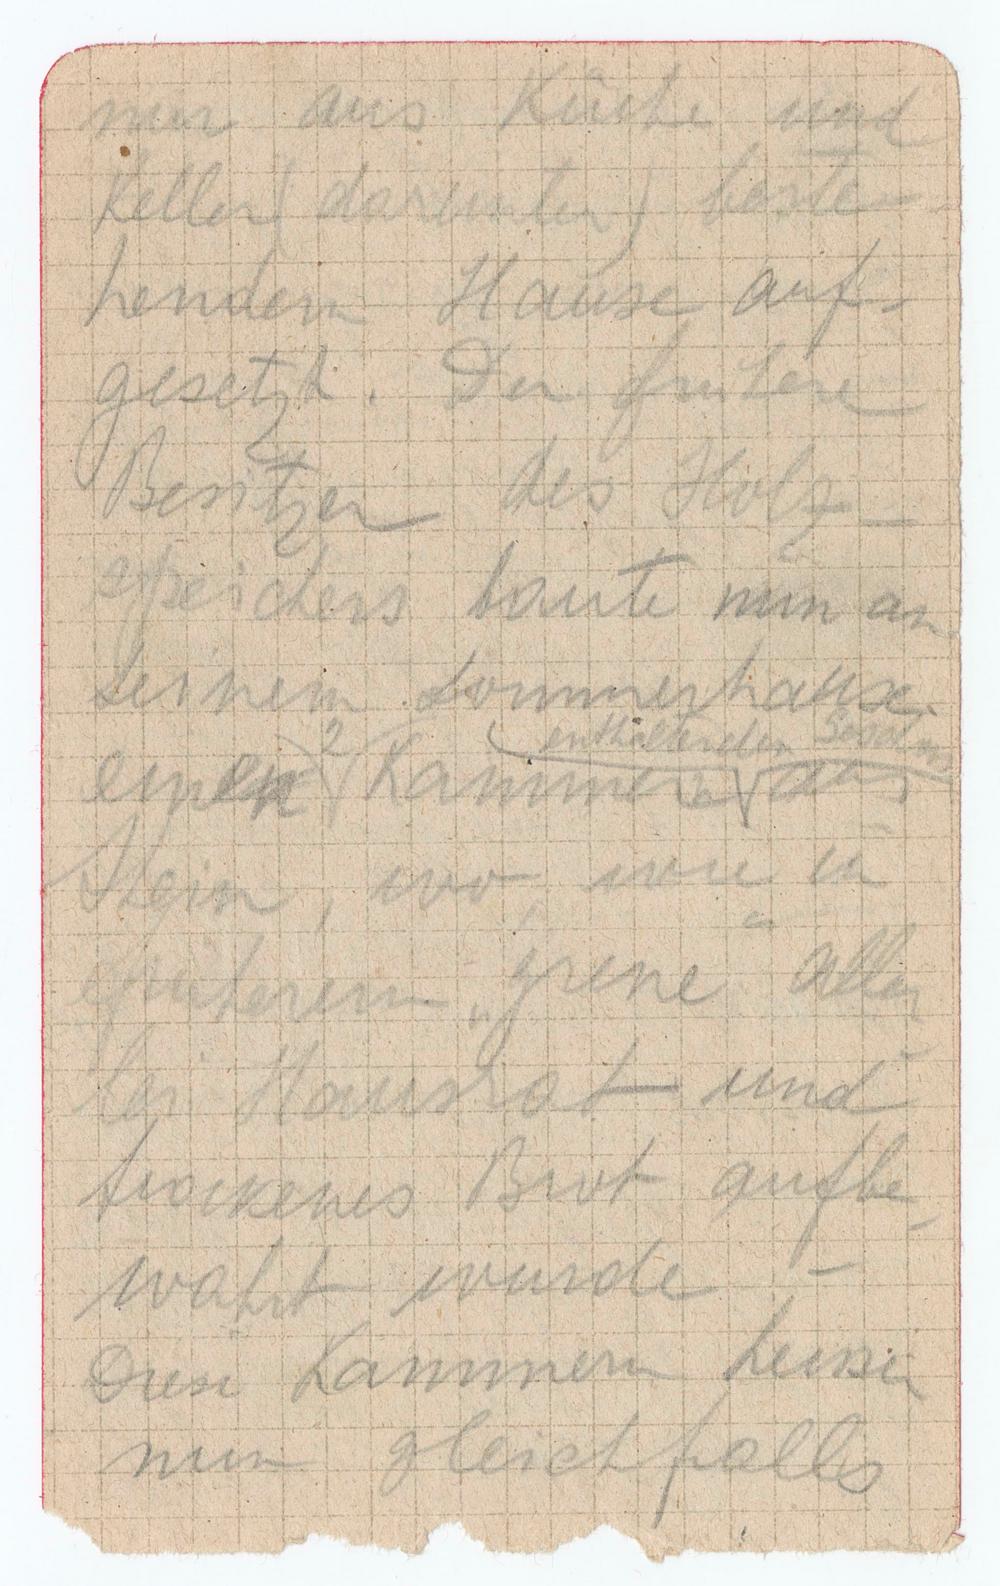 nur aus Küche und
Keller (darunter) beste-
hendem Hause auf-
gesetzt. Der frühere
Besitzer des Holz-
speichers baute nun an
seinem Sommerhause
enthaltenden
einen 2 Kammern aus
Stein, wo, wie in
früherem „grene“ aller
lei Hausrat und
trockenes Brot aufbe-
wahrt wurde –
Diese Kammern heissen
nun gleichfalls